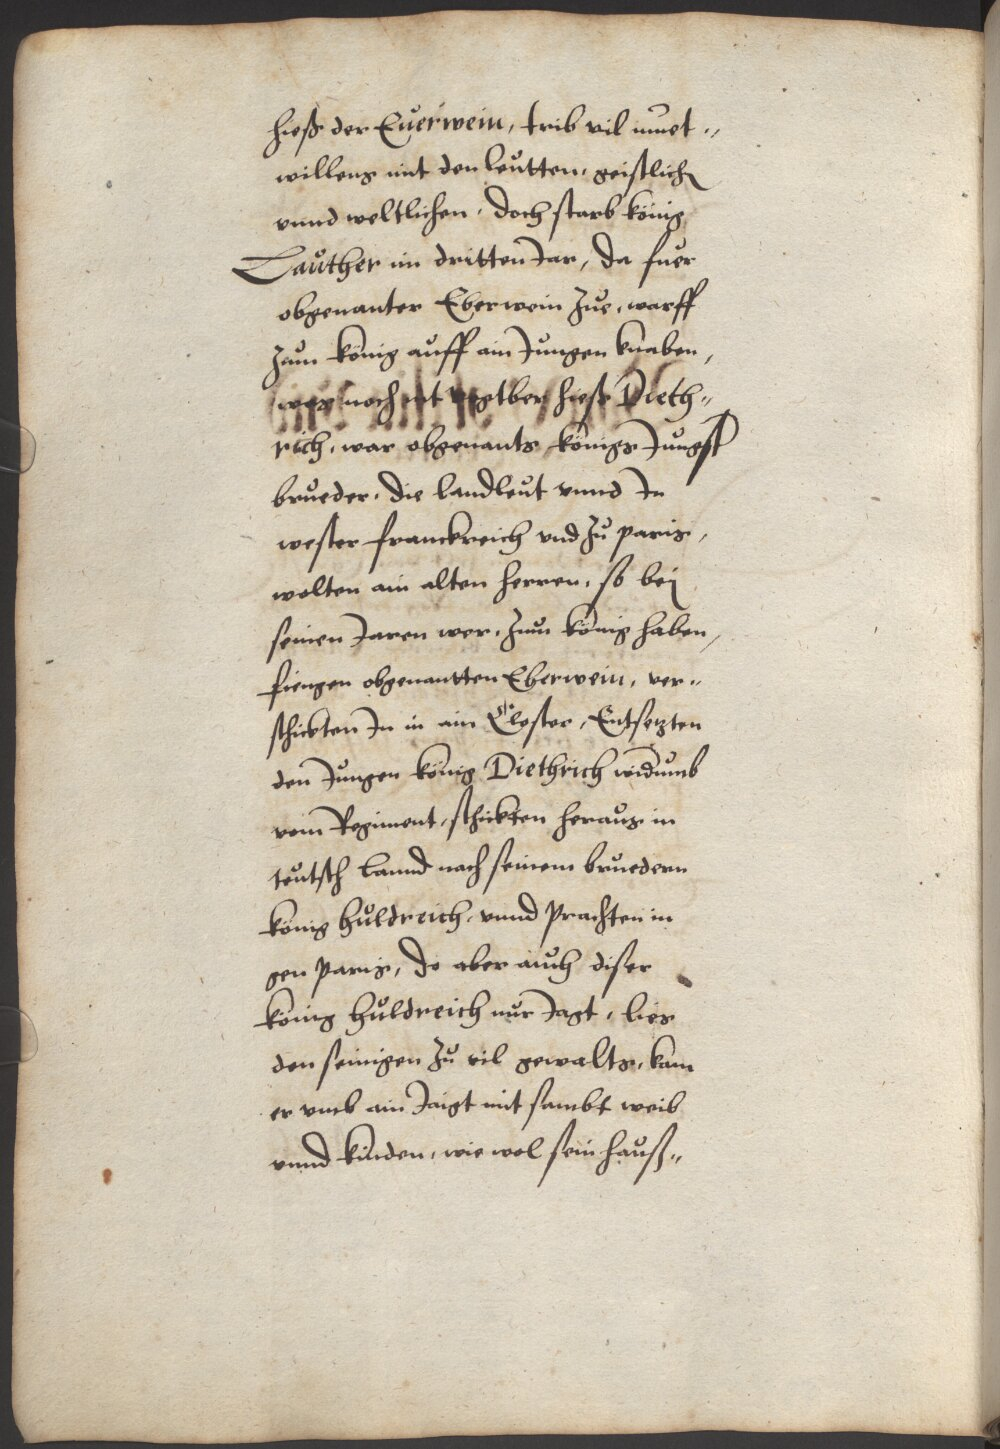 hieß der Euerwein, trib vil muet„
willens mit den leutten, geistlichen
vnnd weltlichen. doch starb könig
Lauther im dritten Jar, da fuer
obgenanter Eberwein zue, warff
zum könig auff ain Jungen knaben,
was noch nit vogtber hieß Dieth„
rich, war obgenants königs Jungst
brueder. die landleut vnnd In
wester franckreich vnd zu paris,
wolten ain alten herren, so bei
seinen Jaren wer, zum könig haben,
fiengen obgenantten Eberwein, ver„
schickten In in ain Closter, Entsetzten
den Jungen könig Diethrich widumb
vom Regiment, schickten heraus in
teutsch lannd nach seinem bruedern
könig huldreich, vnnd prachten in
gen paris, do aber auch diser
könig huldreich nur Jagt, lies
den seinigen zu vil gewalts, kam
er vmb ain Jaigt mit sambt weib
vnnd kinden, wie wol sein hauß„